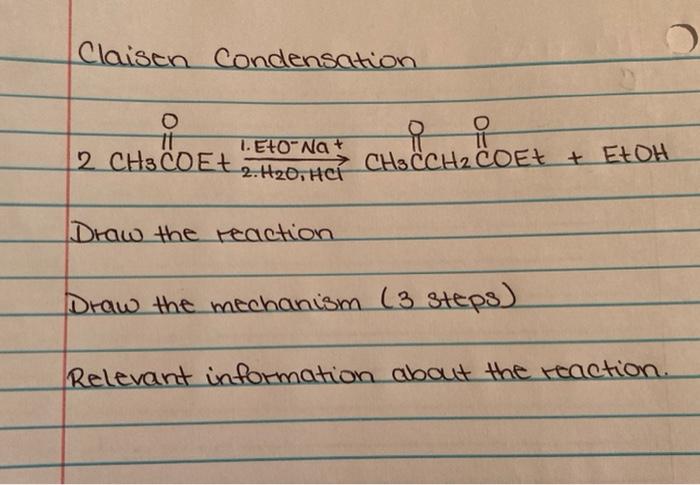 Claisen Condensation
O O O
|| || ||
2 CH3COEt 1. EtO⁻Na+ CH3CCH2COEt + EtOH
2. H2O, HCl
Draw the reaction
Draw the mechanism (3 steps)
Relevant information about the reaction.